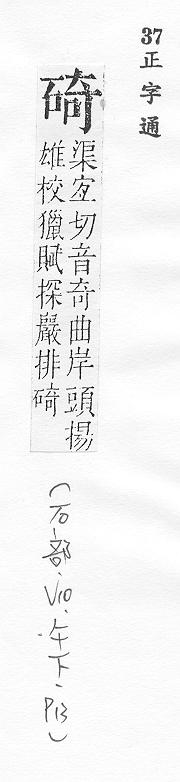 37正字通
碕
渠宐切音奇曲岸頭揚
雄校獵賦探巖排碕
（石部．V10．午下．P13）